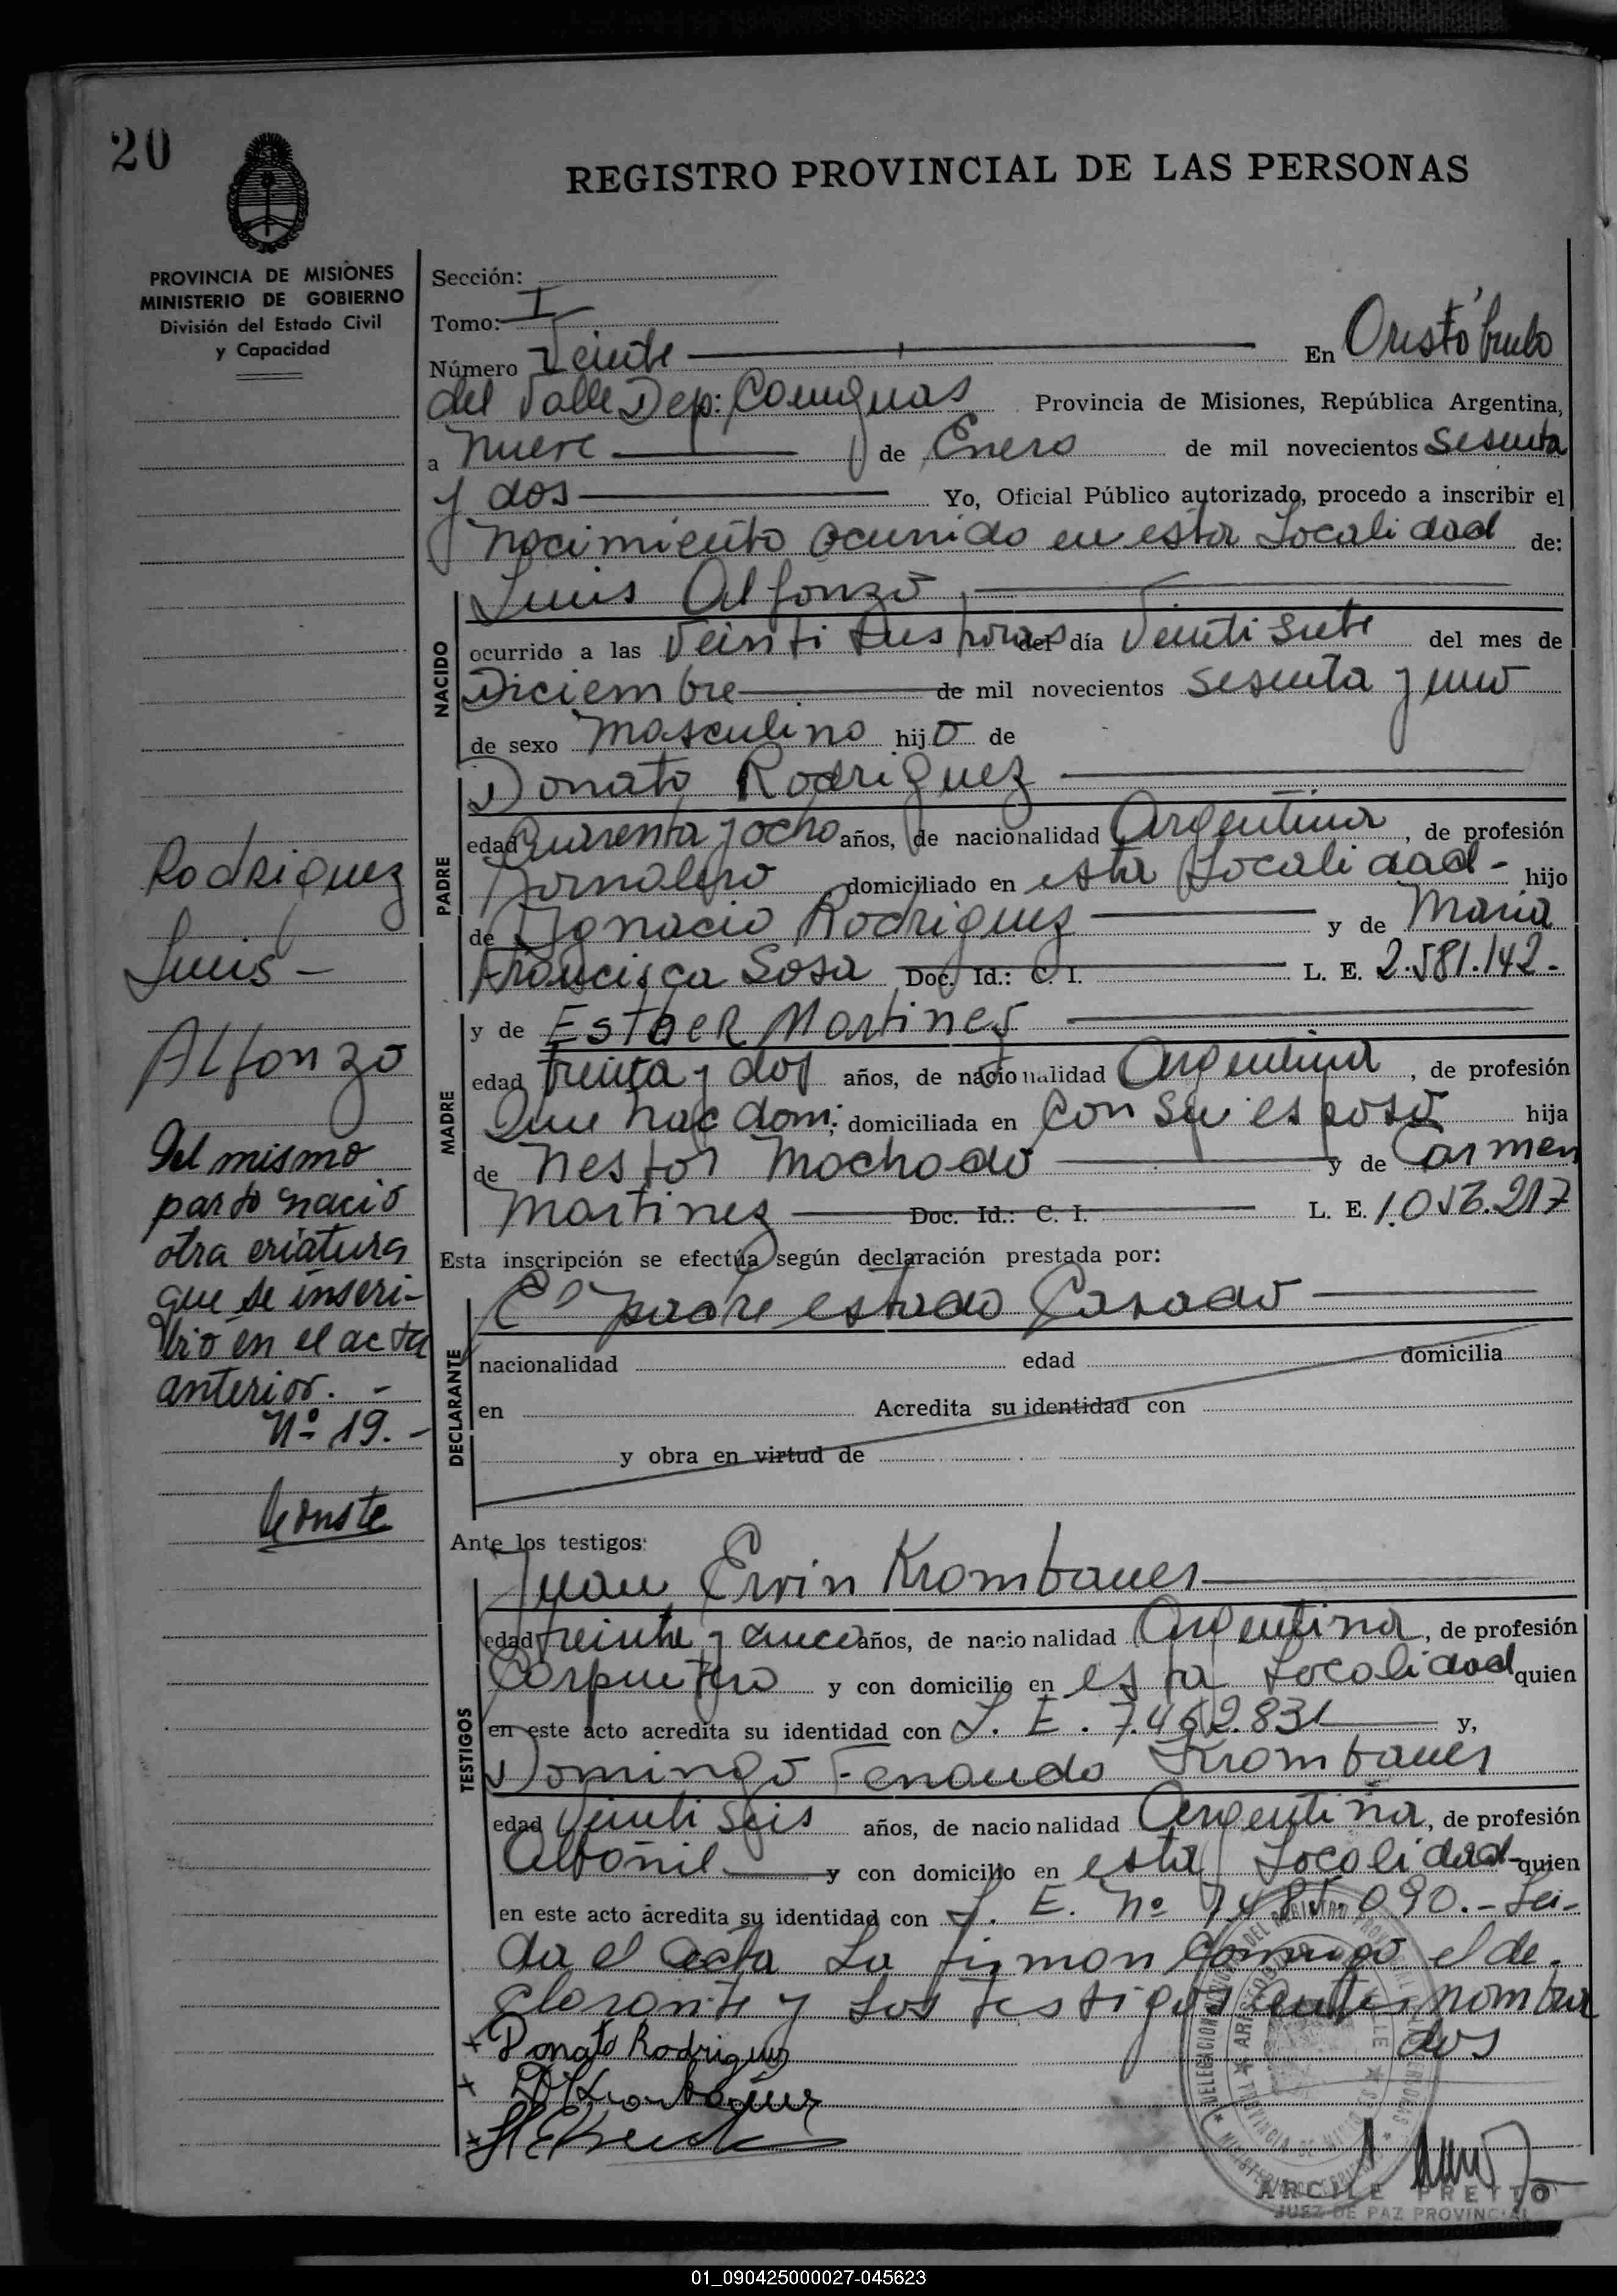 20
REGISTRO PROVINCIAL DE LAS PERSONAS
PROVINCIA DE MISIONES
MINISTERIO DE GOBIERNO
División del Estado Civil
y Capacidad
Sección:
Tomo: I
Número Veinte En Aristóbulo
del Valle Dep: Cainguas Provincia de Misiones, República Argentina,
a nueve de Enero de mil novecientos sesenta
y dos Yo, Oficial Público autorizado, procedo a inscribir el
nacimiento ocurrido en esta Localidad de:
Luis Alfonzo
NACIDO
ocurrido a las Veinti tres horas del día Veinti siete del mes de
Diciembre de mil novecientos sesenta y uno
de sexo masculino hijo de
Donato Rodriguez
PADRE
edad Cuarenta y ocho años, de nacionalidad Argentina, de profesión
Jornalero domiciliado en esta Localidad - hijo
de Ignacio Rodriguez y de Maria
Francisca Sosa Doc. Id.: C. I. L. E. 2.581.142.-
y de Esther Martinez
MADRE
edad treinta y dos años, de nacionalidad Argentina, de profesión
Que hac dom; domiciliada en con su esposo hija
de Nestor Machado y de Carmen
Martinez Doc. Id.: C. I. L. E. 1.056.217
Esta inscripción se efectúa según declaración prestada por:
El padre estado Casado
DECLARANTE
nacionalidad edad domicilia
en Acredita su identidad con
y obra en virtud de
Rodriguez
Luis -
Alfonzo
Del mismo
parto nació
otra criatura
que se inscri-
bió en el acta
anterior. -
Nº 19. -
Conste
Ante los testigos:
Juan Ervin Krombauer
TESTIGOS
edad treinta y cinco años, de nacionalidad Argentina, de profesión
Carpintero y con domicilio en esta Localidad quien
en este acto acredita su identidad con L. E. 7.462.831 y,
Domingo Fenando Krombauer
edad Veinti seis años, de nacionalidad Argentina, de profesión
Albañil y con domicilio en esta Localidad - quien
en este acto acredita su identidad con L. E. Nº 7.485.090.- Lei-
da el acta La firman Conmigo el de-
clarante y Los testigos antes nombra
dos
x Donato Rodriguez
x
x
ARCILE PRETTO
JUEZ DE PAZ PROVINCIAL
01_090425000027-045623